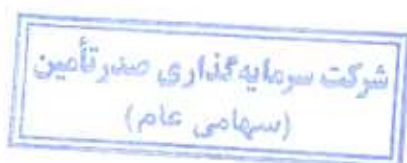 شرکت سرمایه گذاری صدر تأمین
(سهامی عام)